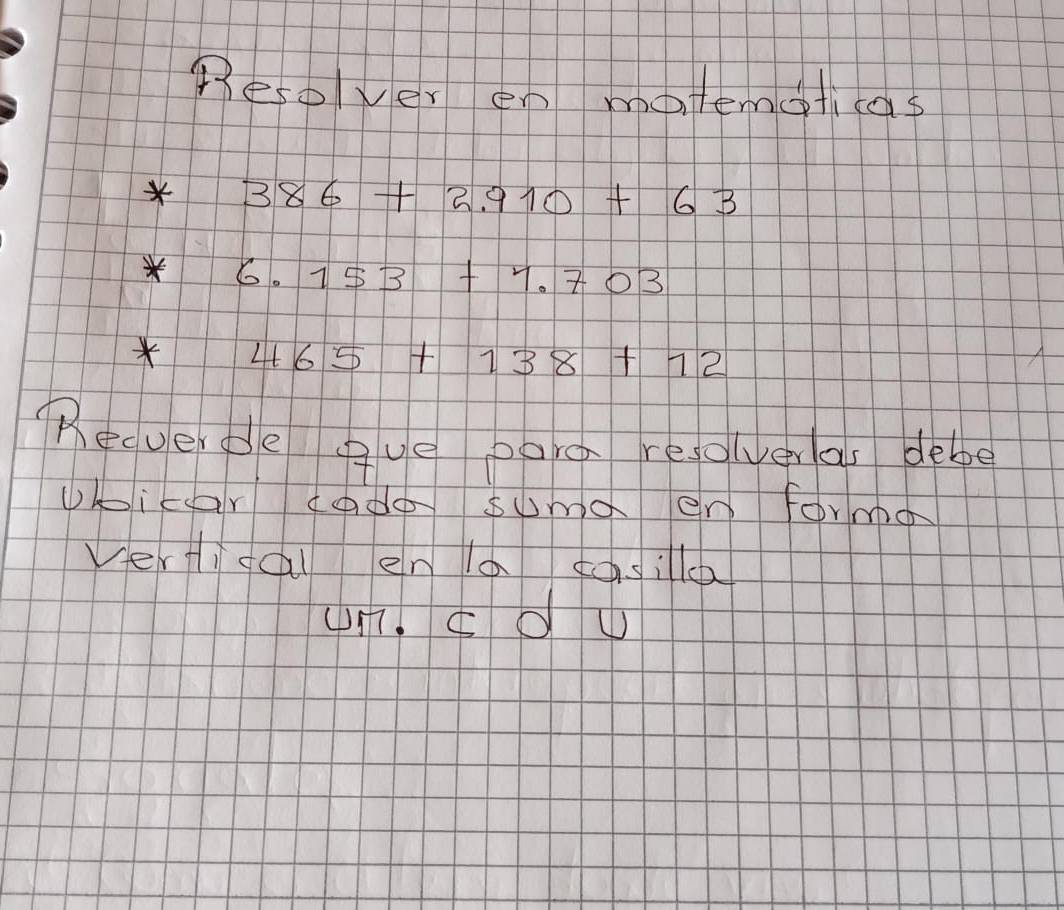 Resolver en matemáticas
* 386 + 2.910 + 63
* 6.153 + 1.703
* 465 + 138 + 12
Recuerde que para resolverlas debe
ubicar cada suma en forma
vertical en la casilla
um. c d u